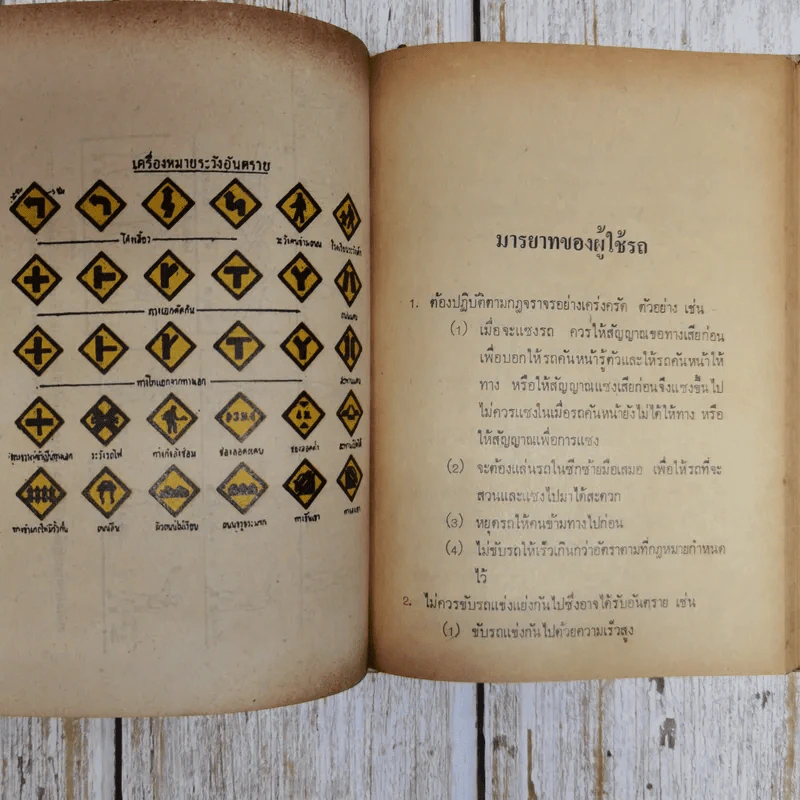 เครื่องหมายระวังอันตราย
โค้งเลี้ยว
ระวังคนข้ามถนน
ทางแยกตัดกัน
ทางโทแยกจากทางเอก
ระวังรถไฟ
ทางกำลังซ่อม
ช่องลอดแคบ
ช่องลอดต่ำ
ถนนลื่น
ผิวถนนไม่เรียบ
ถนนขรุขระมาก
ทางขึ้นเขา
มารยาทของผู้ใช้รถ
1. ต้องปฏิบัติตามกฎจราจรอย่างเคร่งครัด ตัวอย่าง เช่น
(1) เมื่อจะแซงรถ ควรให้สัญญาณขอทางเสียก่อน
เพื่อบอกให้รถคันหน้ารู้ตัวและให้รถคันหน้าให้
ทาง หรือให้สัญญาณแซงเสียก่อนจึงแซงขึ้นไป
ไม่ควรแซงในเมื่อรถคันหน้ายังไม่ได้ให้ทาง หรือ
ให้สัญญาณเพื่อการแซง
(2) จะต้องแล่นรถในซีกซ้ายมือเสมอ เพื่อให้รถที่จะ
สวนและแซงไปมาได้สะดวก
(3) หยุดรถให้คนข้ามทางไปก่อน
(4) ไม่ขับรถให้เร็วเกินกว่าอัตราตามที่กฎหมายกำหนด
ไว้
2. ไม่ควรขับรถแข่งแย่งกันไปซึ่งอาจได้รับอันตราย เช่น
(1) ขับรถแข่งกันไปด้วยความเร็วสูง